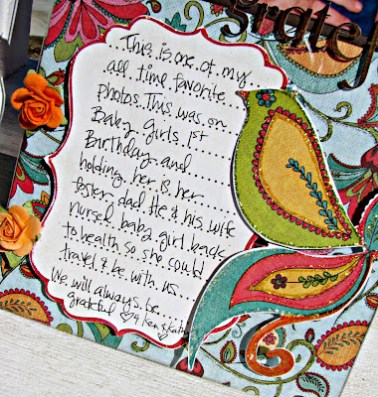 gratef
...This is one of my
all time favorite...
photos. This was on
Baby girls 1st
Birthday and.....
holding her is her....
foster dad. He & his wife
nursed baby girl back
to health so she could
travel & be with us....
We will always be....
grateful ♡ Ken & Kathy